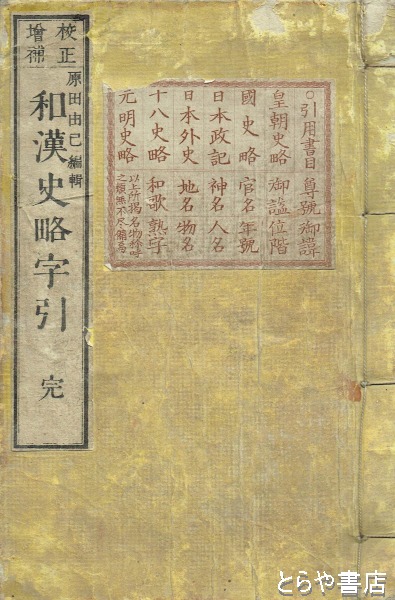 校正
增補
原田由己編輯
和漢史略字引 完
○引用書目 尊號御諱
皇朝史略 御謚位階
國史略 官名年號
日本政記 神名人名
日本外史 地名物名
十八史略 和歌熟字
元明史略
以上所揭名物称呼
之類無不尽備焉
とらや書店